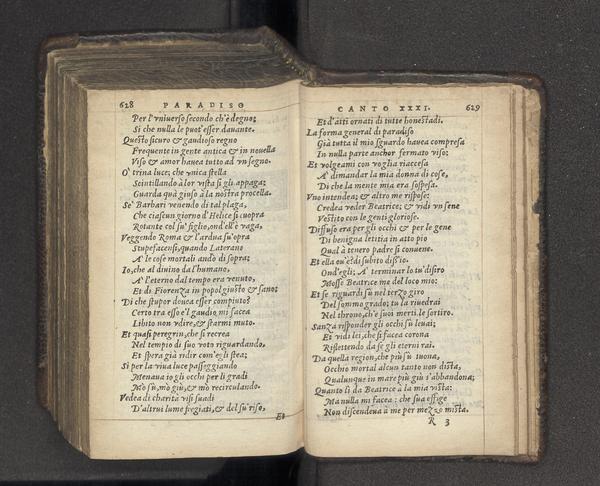 628 PARADISO
Per l'vniuerso secondo ch'è degno;
Si che nulla le puot'esser dauante.
Questo sicuro & gaudioso regno
Frequente in gente antica & in nouella
Viso & amor hauea tutto ad vn segno.
O' trina luce; che vnica stella
Scintillando à lor vista si gli appaga;
Guarda quà giuso à la nostra procella.
Se' Barbari venendo di tal plaga,
Che ciascun giorno d'Helice si cuopra
Rotante col su' figlio, ond'ell'è vaga,
Veggendo Roma & l'ardua su'opra
Stupefacensi, quando Laterano
A' le cose mortali andò di sopra;
Io, che al diuino dal'humano,
A' l'eterno dal tempo era venuto,
Et di Fiorenza in popol giusto & sano;
Di che stupor douea esser compiuto?
Certo tra esso e'l gaudio mi facea
Libito non vdire, & starmi muto.
Et quasi peregrin, che si recrea
Nel tempio di suo voto riguardando,
Et spera già ridir com'egli stea;
Si per la viua luce passeggiando
Menaua io gli occhi per li gradi
Mò sù, mò giù, & mò recirculando.
Vedea di charità visi suadi
D'altrui lume fregiati, & del su'riso,
Et
CANTO XXXI. 629
Et d'atti ornati di tutte honestadi.
La forma general di paradiso
Già tutta il mio sguardo hauea compresa
In nulla parte anchor fermato viso;
Et volgeami con voglia riaccesa
A' dimandar la mia donna di cose,
Di che la mente mia era sospesa.
Vno intendea; & altro me rispose:
Credea veder Beatrice; & vidi vn sene
Vestito con le genti gloriose.
Diffuso era per gli occhi & per le gene
Di benigna letitia in atto pio
Qual à tenero padre si conuene.
Et ella ou'è? di subito diss'io.
Ond'egli; A' terminar lo tu'disiro
Mosse Beatrice me del loco mio:
Et se riguardi sù nel terzo giro
Del sommo grado; tu la riuedrai
Nel throno, ch'e suoi merti le sortiro.
Sanza risponder gli occhi su leuai;
Et vidi lei, che si facea corona
Riflettendo da se gli eterni rai.
Da quella region, che più su tuona,
Occhio mortal alcun tanto non dista,
Qualunque in mare più giù s'abbandona;
Quanto lì da Beatrice à la mia vista:
Ma nulla mi facea: che sua effige
Non discendeua à me per mezzo mista.
R 3